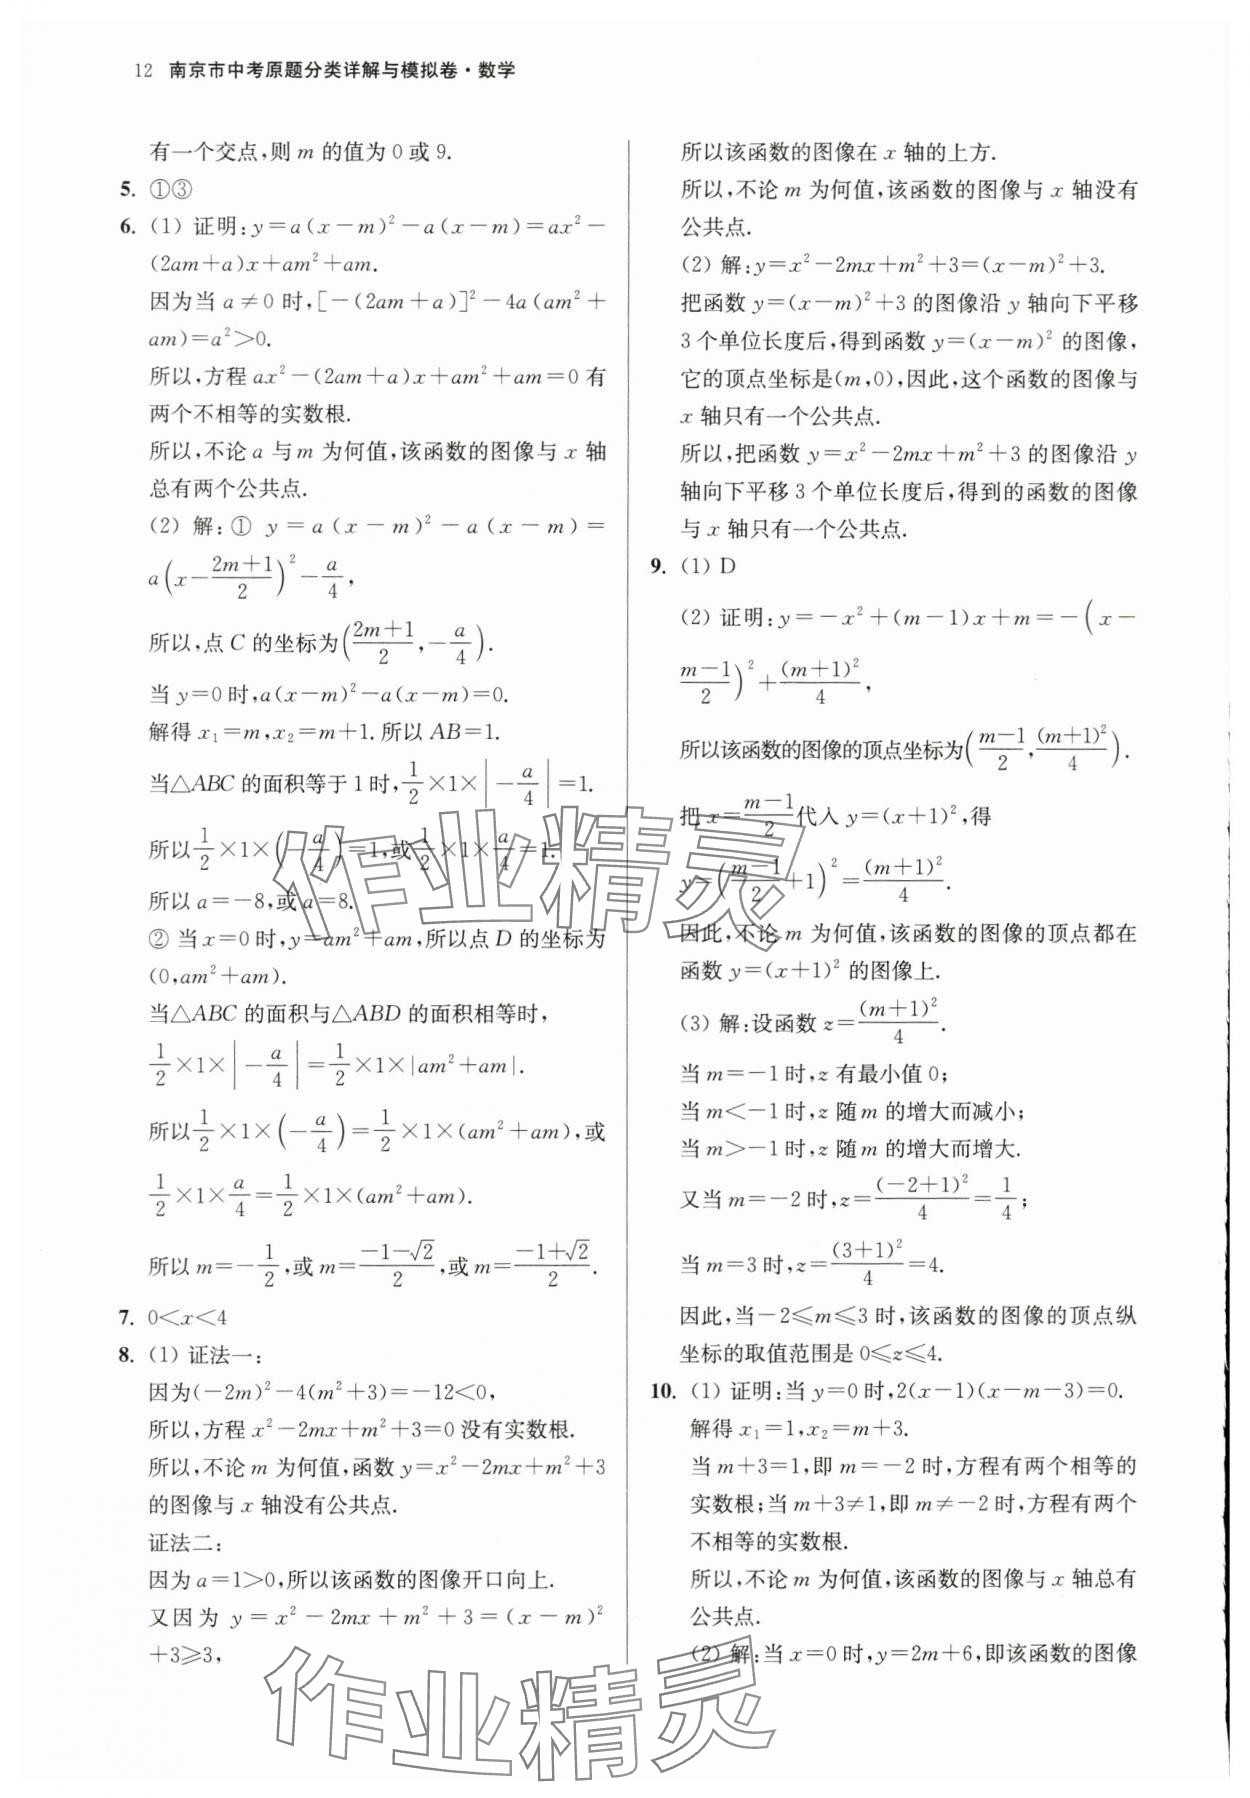 12 南京市中考原题分类详解与模拟卷·数学
有一个交点,则 m 的值为 0 或 9.
5. ①③
6. (1) 证明:y=a(x-m)²-a(x-m)=ax²-
(2am+a)x+am²+am.
因为当 a≠0 时,[-(2am+a)]²-4a(am²+
am)=a²>0.
所以,方程 ax²-(2am+a)x+am²+am=0 有
两个不相等的实数根.
所以,不论 a 与 m 为何值,该函数的图像与 x 轴
总有两个公共点.
(2) 解:① y=a(x-m)²-a(x-m)=
a(x-\frac{2m+1}{2})²-\frac{a}{4},
所以,点 C 的坐标为(\frac{2m+1}{2},-\frac{a}{4}).
当 y=0 时,a(x-m)²-a(x-m)=0.
解得 x₁=m,x₂=m+1.所以 AB=1.
当△ABC 的面积等于 1 时,\frac{1}{2}×1×|-\frac{a}{4}|=1.
所以\frac{1}{2}×1×(-\frac{a}{4})=1,或\frac{1}{2}×1×\frac{a}{4}=1.
所以 a=-8,或 a=8.
② 当 x=0 时,y=am²+am,所以点 D 的坐标为
(0,am²+am).
当△ABC 的面积与△ABD 的面积相等时,
\frac{1}{2}×1×|-\frac{a}{4}|=\frac{1}{2}×1×|am²+am|.
所以\frac{1}{2}×1×(-\frac{a}{4})=\frac{1}{2}×1×(am²+am),或
\frac{1}{2}×1×\frac{a}{4}=\frac{1}{2}×1×(am²+am).
所以 m=-\frac{1}{2},或 m=\frac{-1-√2}{2},或 m=\frac{-1+√2}{2}.
7. 0<x<4
8. (1) 证法一:
因为(-2m)²-4(m²+3)=-12<0,
所以,方程 x²-2mx+m²+3=0 没有实数根.
所以,不论 m 为何值,函数 y=x²-2mx+m²+3
的图像与 x 轴没有公共点.
证法二:
因为 a=1>0,所以该函数的图像开口向上.
又因为 y=x²-2mx+m²+3=(x-m)²
+3≥3,
所以该函数的图像在 x 轴的上方.
所以,不论 m 为何值,该函数的图像与 x 轴没有
公共点.
(2) 解:y=x²-2mx+m²+3=(x-m)²+3.
把函数 y=(x-m)²+3 的图像沿 y 轴向下平移
3 个单位长度后,得到函数 y=(x-m)² 的图像,
它的顶点坐标是(m,0),因此,这个函数的图像与
x 轴只有一个公共点.
所以,把函数 y=x²-2mx+m²+3 的图像沿 y
轴向下平移 3 个单位长度后,得到的函数的图像
与 x 轴只有一个公共点.
9. (1) D
(2) 证明:y=-x²+(m-1)x+m=-(x-
\frac{m-1}{2})²+\frac{(m+1)²}{4},
所以该函数的图像的顶点坐标为(\frac{m-1}{2},\frac{(m+1)²}{4}).
把 x=\frac{m-1}{2}代入 y=(x+1)²,得
y=(\frac{m-1}{2}+1)²=\frac{(m+1)²}{4}.
因此,不论 m 为何值,该函数的图像的顶点都在
函数 y=(x+1)² 的图像上.
(3) 解:设函数 z=\frac{(m+1)²}{4}.
当 m=-1 时,z 有最小值 0;
当 m<-1 时,z 随 m 的增大而减小;
当 m>-1 时,z 随 m 的增大而增大.
又当 m=-2 时,z=\frac{(-2+1)²}{4}=\frac{1}{4};
当 m=3 时,z=\frac{(3+1)²}{4}=4.
因此,当-2≤m≤3 时,该函数的图像的顶点纵
坐标的取值范围是 0≤z≤4.
10. (1) 证明:当 y=0 时,2(x-1)(x-m-3)=0.
解得 x₁=1,x₂=m+3.
当 m+3=1,即 m=-2 时,方程有两个相等的
实数根;当 m+3≠1,即 m≠-2 时,方程有两个
不相等的实数根.
所以,不论 m 为何值,该函数的图像与 x 轴总有
公共点.
(2) 解:当 x=0 时,y=2m+6,即该函数的图像
作业精灵
作业精灵